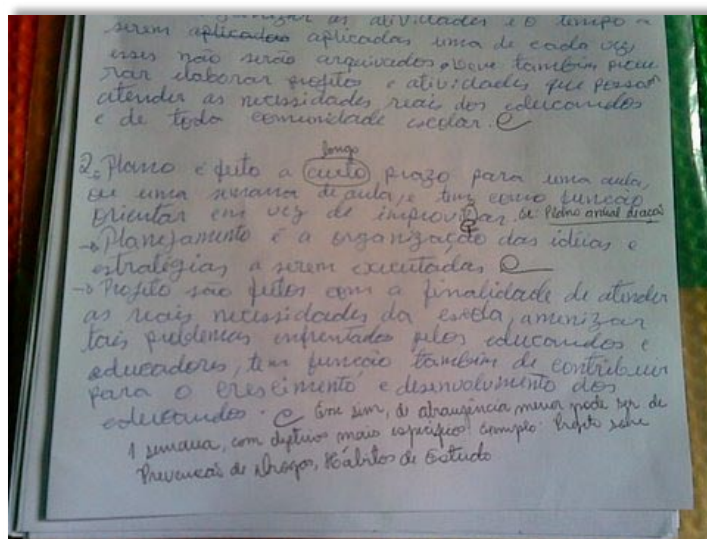 as atividades e o tempo a
serem aplicados aplicadas uma de cada vez
esses não serão arquivados, deve também procu
rar elaborar projetos e atividades que possam
atender as necessidades reais dos educandos
e de toda comunidade escolar. C
longo
2. Plano é feito a curto prazo para uma aula,
ou uma semana de aula, e tem como função
orientar em vez de improvisar. se: Plano anual de ação
→ Planejamento é a organização das idéias e
estratégias a serem executadas C
→ Projeto são feitos com a finalidade de atender
as reais necessidades da escola, amenizar
tais problemas enfrentados pelos educandos e
educadores, tem função também de contribuir
para o crescimento e desenvolvimento dos
educandos. C Esse sim, de abrangência menor pode ser de
1 semana, com objetivos mais específicos: exemplo: Projeto sobre
Prevenção de Drogas, Hábitos de Estudo